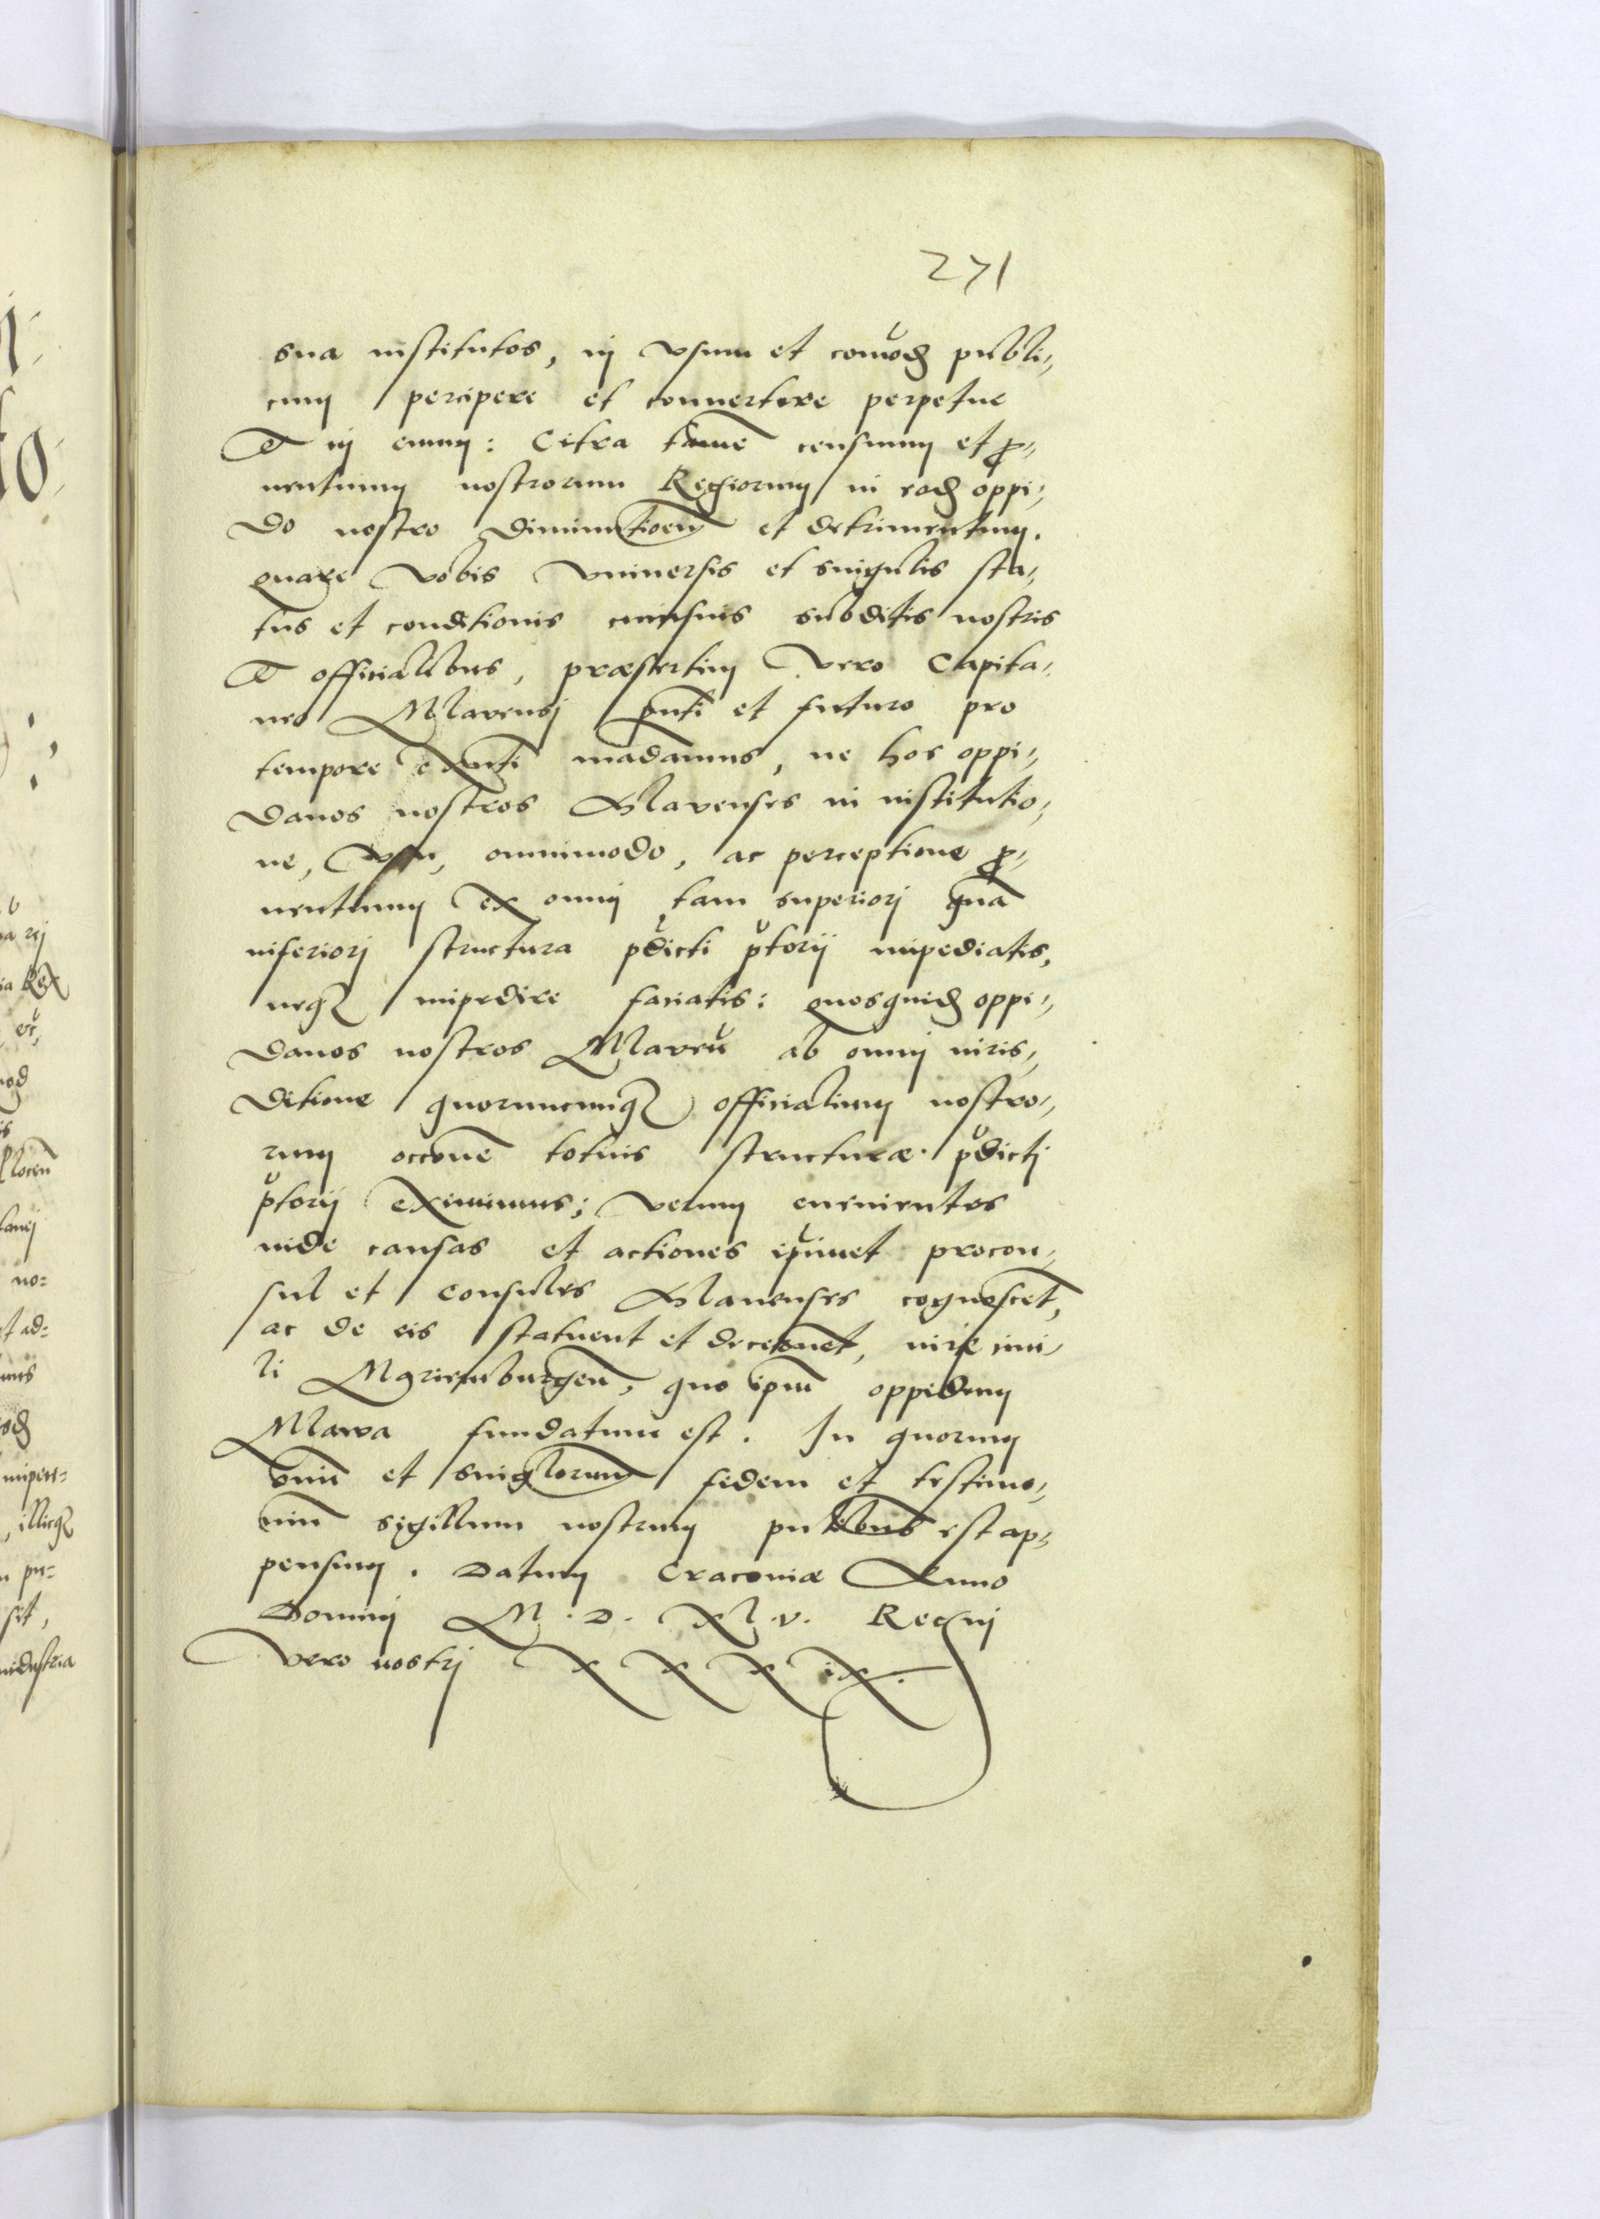 271
sua institutos, in vsum et comod publi,
cum percipere et conuertere perpetue
& in euum: Citra tame censuum et pro,
uentuum nostrorum Regiorum in eod oppi,
do nostro diminutioem et detrimentum.
quare vobis vniuersis et singulis sta,
tus et conditionis cuiusuis subditis nostris
& officialibus, præsertim vero Capita,
neo Mlavensi pnti et futuro pro
tempore exnti madamus, ne hos oppi,
danos nostros Mlavenses in institutio,
ne, vsu, omnimodo, ac perceptione pro,
uentuum ex omni tam superiori qua
inferiori structura pdicti ptorii impediatis,
neq impedire faciatis: quosquid oppi,
danos nostros Mlaven ab omni iuris,
ditione quorumcunq officialium nostro,
rum occone totius structuræ pdicti
ptorii eximimus; verum euenientes
inde causas et actiones ipimet procon,
sul et Consules Mlauenses cognoscet,
ac de eis statuent et decernet, iure ciui,
li Marienburgen, quo ipm oppidum
Mlawa fundatum est. In quorum
oniu et singlorum fidem et testimo,
niu sigillum nostrum pntibus est ap,
pensum. Datum Cracouiæ Anno
Domini M. D. Xl. v. Regni
vero nostri X X X iX.